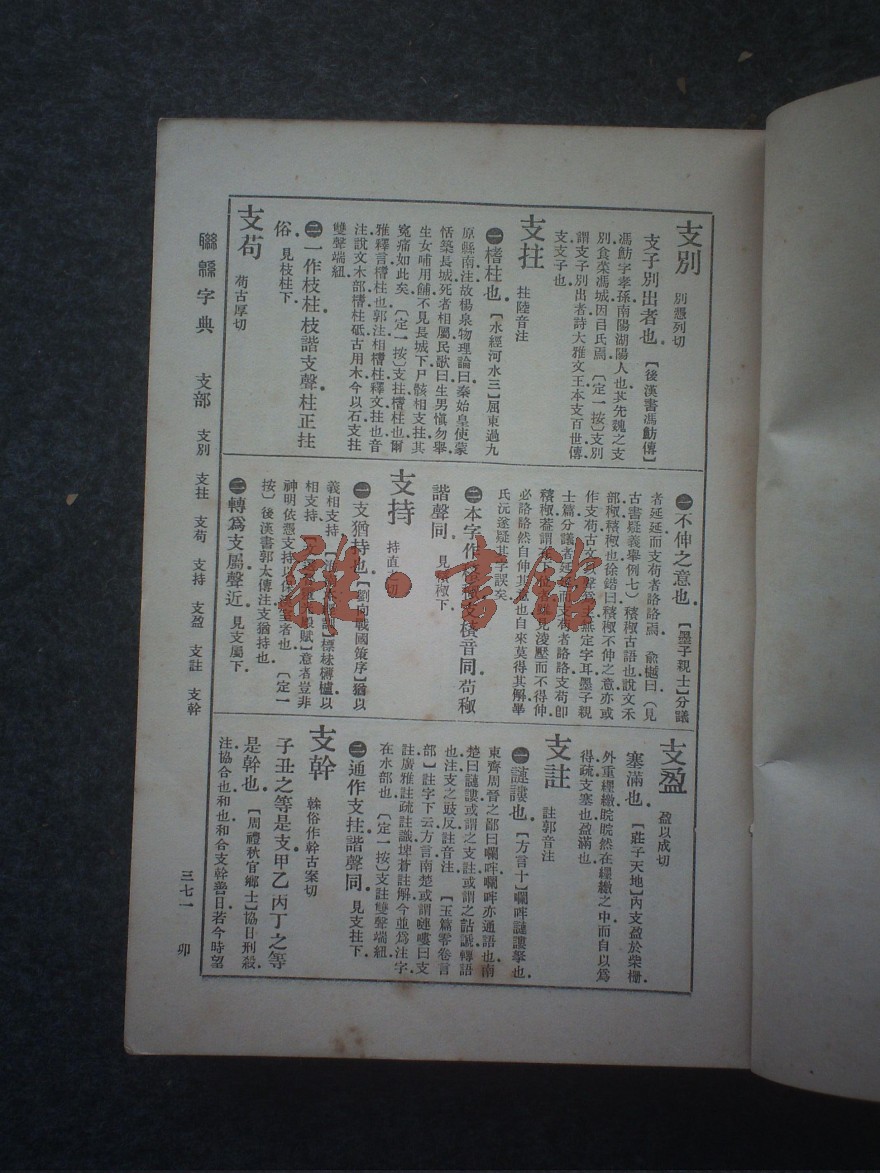 支別 別憑列切
支子別出者也。【後漢書馮魴傳】
馮魴字孝孫南陽湖陽人也其先魏之支
別食菜馮城因曰氏焉〔定一按〕支別
謂支子別出者詩大雅文王本支百世傳
支支子也。
支拄 拄陸音注
㊀榰柱也。【水經河水三】屈東過九
原縣南注故楊泉物理論曰秦始皇使蒙
恬築長城死者相屬民歌曰生男愼勿舉
生女哺用餔不見長城下尸骸相支拄其
冤痛如此矣〔定一按〕支拄榰柱也爾
雅釋言榰柱也郭注相榰柱釋文拄也音
注說文木部榰柱砥古用木今以石支拄
雙聲端紐。
㊁一作枝柱枝諧支聲柱正拄
俗。見枝柱下。
支苟 苟古厚切
㊀不伸之意也。【墨子親士】分議
者延延而支苟者詻詻焉 兪樾曰（見
古書疑義舉例七）𥡴𥝖古語也說文禾
部𥝖𥡴𥝖也徐鍇曰𥡴𥝖不伸之意亦或
作支苟古文
士篇分議者延延而支苟者詻詻支苟卽
𥡴𥝖蓋謂 淩壓而不得伸
必詻詻然自伸其 也自來莫得其解畢
氏沅遂疑其字誤矣
㊁本字作𥡴𥝖支𥡴音同苟𥝖
諧聲同。見𥡴𥝖下
支持 持直 切
㊀支猶持也。【劉向戰國策序】猶以
義相支持 標枺欂櫨以
相支持 賦】意者豈非
神明依憑支持以保 者也〔定一
按〕後漢書郭太傳注支猶持也
㊁轉爲支屬聲近。見支屬下。
支盈 盈以成切
塞滿也。【莊子天地】內支盈於柴柵
外重纆繳睆睆然在纆繳之中而自以爲
得疏支塞也盈滿也
支註 註郭音注
㊀謰謱也。【方言十】㘓哰謰謱拏也
東齊周晉之鄙曰㘓哰㘓哰亦通語也南
楚曰謰謱或謂之支註或謂之詀謕轉語
也注支之豉反註音注【玉篇零卷言
部】註字下云方言南楚或謂嗹嘍曰支
註廣雅註疏註識埤蒼註解今並爲注字
在水部也〔定一按〕支註雙聲端紐
㊁通作支拄諧聲同。見支拄下。
支幹 榦俗作幹古案切
子丑之等是支甲乙丙丁之等
是幹也。【周禮秋官鄉士】協日刑殺
注協合也和也和合支幹善日若今時望
聯緜字典 支部 支別 支拄 支苟 支持 支盈 支註 支幹 三七一 卯
雜·書館